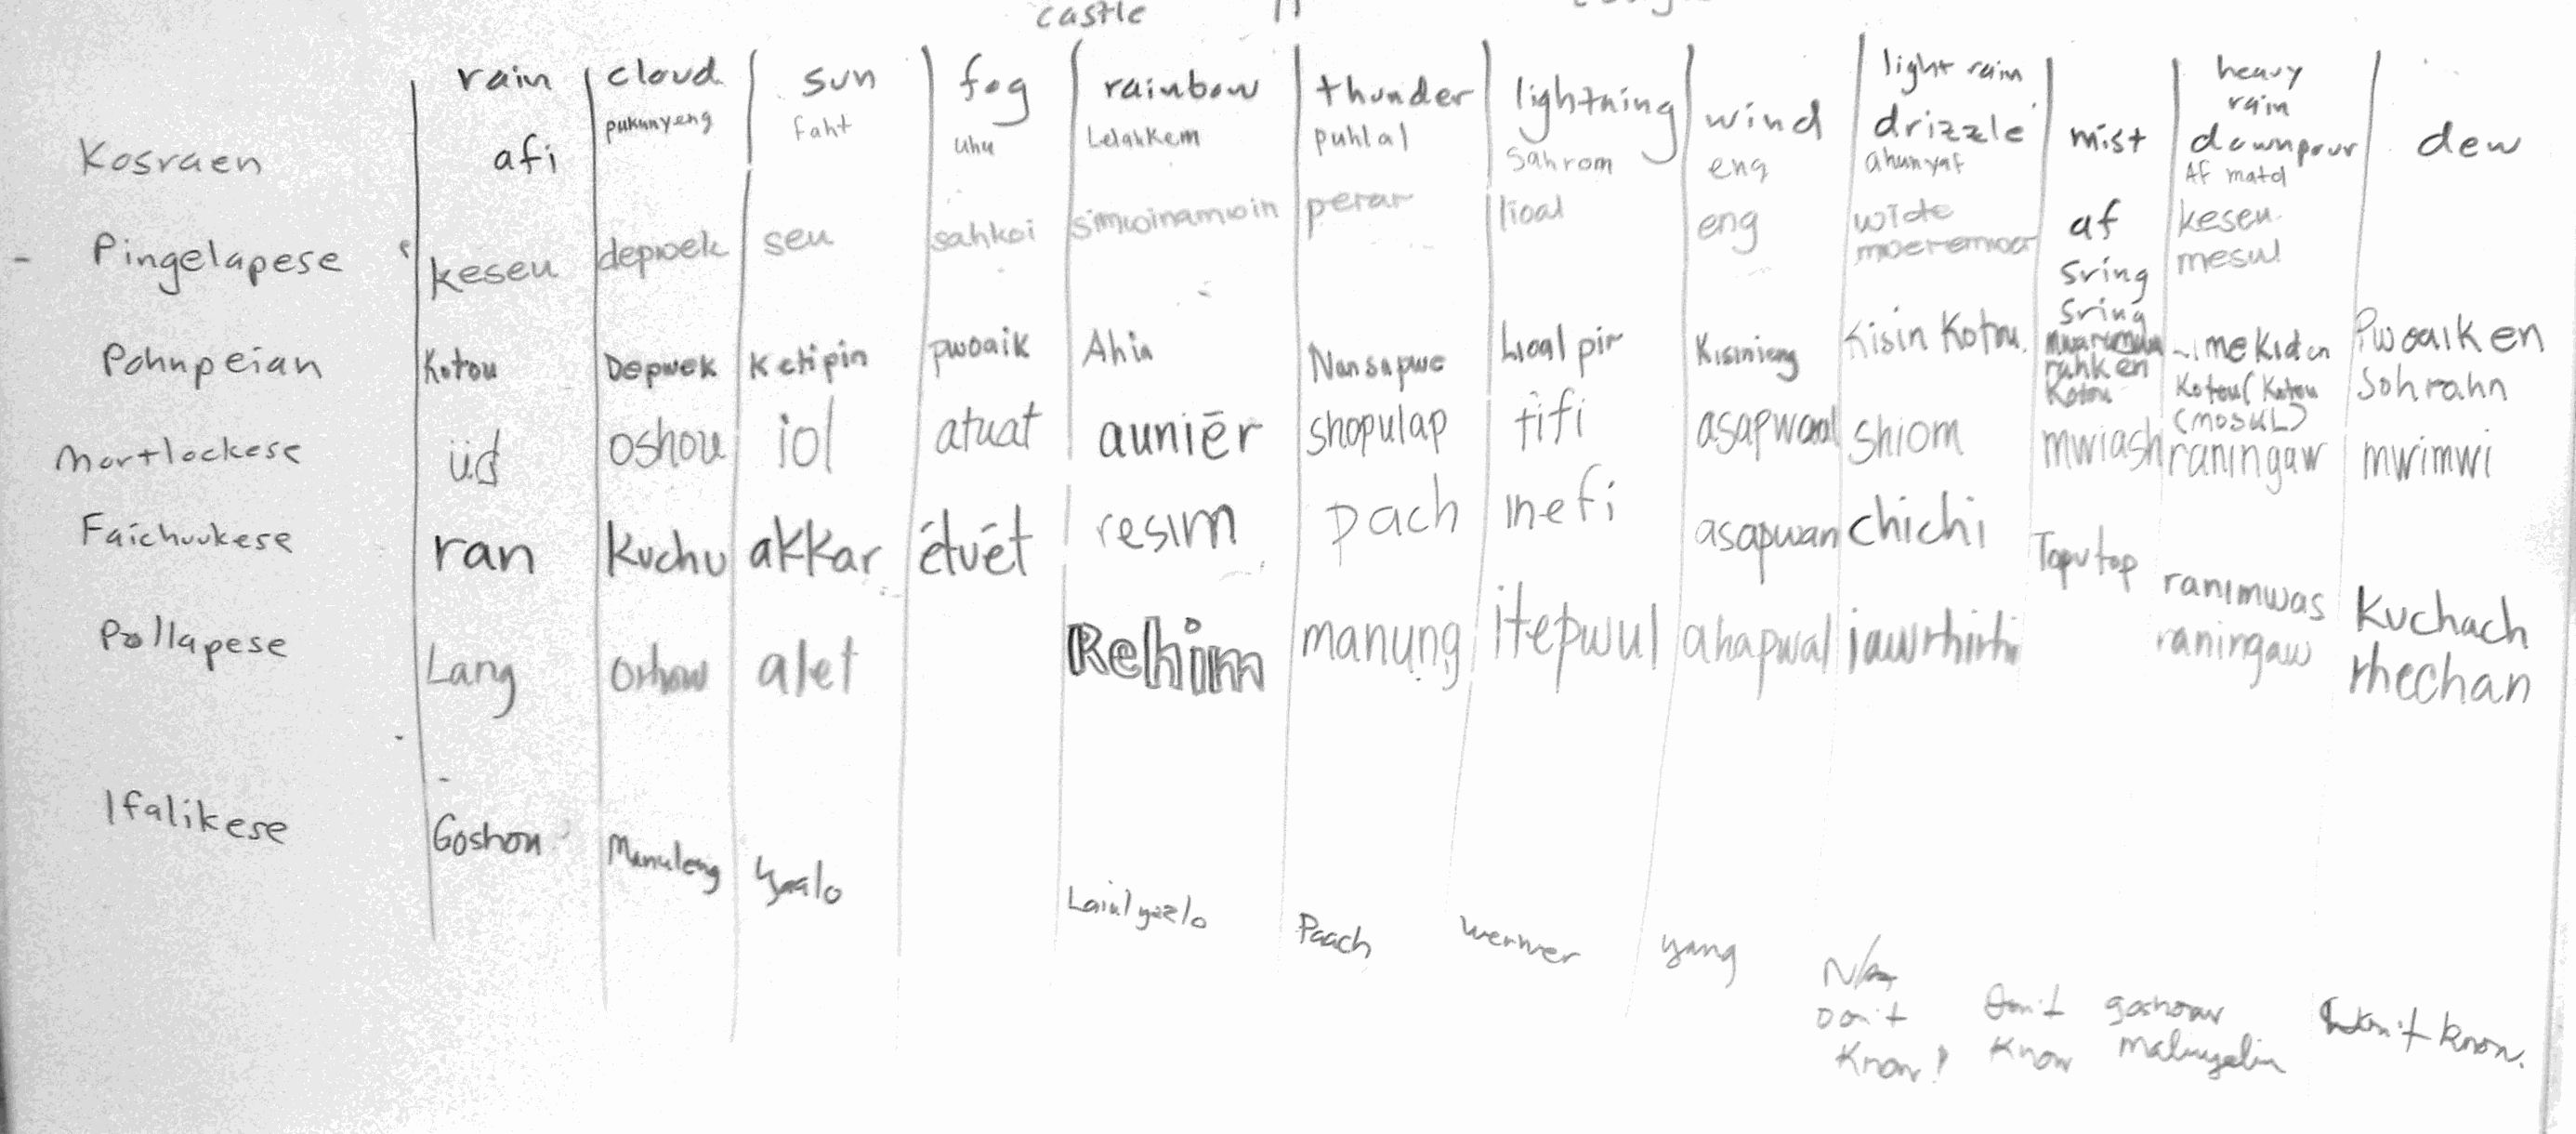 castle
rain cloud sun fog rainbow thunder lightning wind light rain drizzle mist heavy rain downpour dew
Kosraen afi pukunyeng faht uhu Lelahkem puhlal Sahrom eng ahunyaf af Sring Sring Af matol
Pingelapese keseu depwek seu sahkoi simwoinamwoin perar lioal eng wide moeremwoer keseu mesul
Pohnpeian Kotou Depwek Ketipin pwoaik Ahia Nansapwe Lioal pir Kisinieng Kisin Kotou rahk en Kotou Kotou (Kotou (mosul) Pwoaik en Sohrahn
Mortlockese üd oshou iol atuat auniēr shopulap fifi asapwaal shiom mwiash raningaw mwimwi
Faichuukese ran Kuchu akkar étuét resim pach inefi asapwan chichi Toputop ranimwas Kuchach
Pollapese Lang Orhow alet Rehim manung itepwul ahapwal iawrhirhi raningaw rhechan
Ifalikese Goshou Manuleng Yaalo Paach werwer yang N/A Don't Know! Don't Know goshouw don't know.